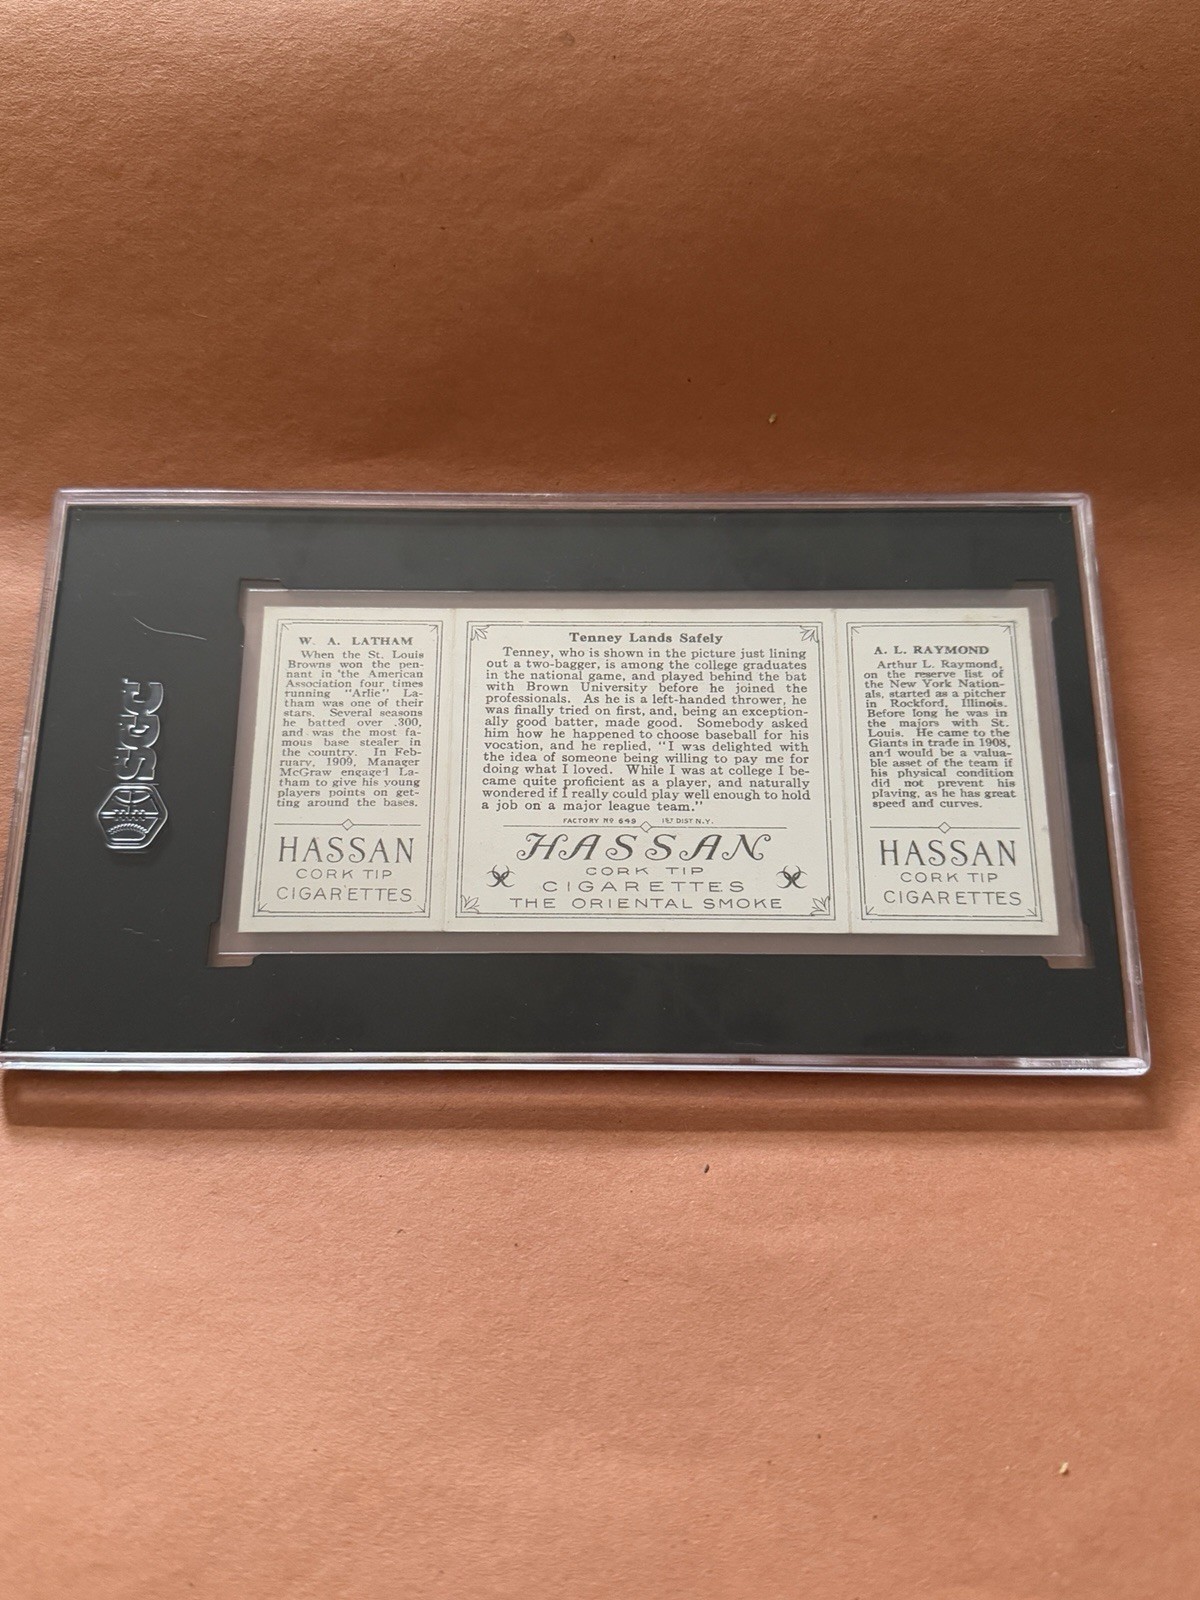 SGC
W. A. LATHAM
When the St. Louis
Browns won the pen-
nant in the American
Association four times
running "Arlie" La-
tham was one of their
stars. Several seasons
he batted over .300,
and was the most fa-
mous base stealer in
the country. In Feb-
ruary, 1909, Manager
McGraw engaged La-
tham to give his young
players points on get-
ting around the bases.
HASSAN
CORK TIP
CIGARETTES
Tenney Lands Safely
Tenney, who is shown in the picture just lining
out a two-bagger, is among the college graduates
in the national game, and played behind the bat
with Brown University before he joined the
professionals. As he is a left-handed thrower, he
was finally tried on first, and, being an exception-
ally good batter, made good. Somebody asked
him how he happened to choose baseball for his
vocation, and he replied, "I was delighted with
the idea of someone being willing to pay me for
doing what I loved. While I was at college I be-
came quite proficient as a player, and naturally
wondered if I really could play well enough to hold
a job on a major league team."
FACTORY No 649 1ST DIST N.Y.
HASSAN
CORK TIP
CIGARETTES
THE ORIENTAL SMOKE
A. L. RAYMOND
Arthur L. Raymond,
on the reserve list of
the New York Nation-
als, started as a pitcher
in Rockford, Illinois.
Before long he was in
the majors with St.
Louis. He came to the
Giants in trade in 1908,
and would be a valua-
ble asset of the team if
his physical condition
did not prevent his
playing, as he has great
speed and curves.
HASSAN
CORK TIP
CIGARETTES